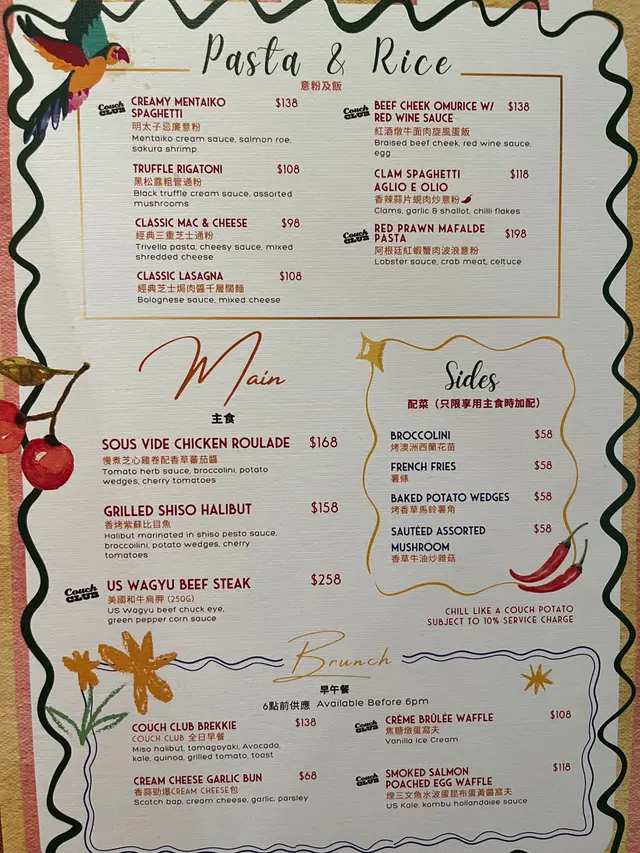 Pasta & Rice
意粉及飯
Couch CLUB
CREAMY MENTAIKO $138
SPAGHETTI
明太子忌廉意粉
Mentaiko cream sauce, salmon roe,
sakura shrimp
TRUFFLE RIGATONI $108
黑松露粗管通粉
Black truffle cream sauce, assorted
mushrooms
CLASSIC MAC & CHEESE $98
經典三重芝士通粉
Trivella pasta, cheesy sauce, mixed
shredded cheese
CLASSIC LASAGNA $108
經典芝士焗肉醬千層闊麵
Bolognese sauce, mixed cheese
Couch CLUB
BEEF CHEEK OMURICE W/ $138
RED WINE SAUCE
紅酒燉牛面肉旋風蛋飯
Braised beef cheek, red wine sauce,
egg
CLAM SPAGHETTI $118
AGLIO E OLIO
香辣蒜片蜆肉炒意粉
Clams, garlic & shallot, chilli flakes
Couch CLUB
RED PRAWN MAFALDE $198
PASTA
阿根廷紅蝦蟹肉波浪意粉
Lobster sauce, crab meat, celtuce
Main
主食
SOUS VIDE CHICKEN ROULADE $168
慢煮芝心雞卷配香草蕃茄醬
Tomato herb sauce, broccolini, potato
wedges, cherry tomatoes
GRILLED SHISO HALIBUT $158
香烤紫蘇比目魚
Halibut marinated in shiso pesto sauce,
broccoilini, potato wedges, cherry
tomatoes
Couch CLUB
US WAGYU BEEF STEAK $258
美國和牛肩胛 (250G)
US Wagyu beef chuck eye,
green pepper corn sauce
Sides
配菜（只限享用主食時加配）
BROCCOLINI $58
烤澳洲西蘭花苗
FRENCH FRIES $58
薯條
BAKED POTATO WEDGES $58
烤香草馬鈴薯角
SAUTÉED ASSORTED $58
MUSHROOM
香草牛油炒雜菇
CHILL LIKE A COUCH POTATO
SUBJECT TO 10% SERVICE CHARGE
Brunch
早午餐
6點前供應 Available Before 6pm
COUCH CLUB BREKKIE $138
COUCH CLUB 全日早餐
Miso halibut, tamagoyaki, Avocado,
kale, quinoa, grilled tomato, toast
CREAM CHEESE GARLIC BUN $68
香蒜勁爆CREAM CHEESE包
Scotch bap, cream cheese, garlic, parsley
Couch CLUB
CRÈME BRÛLÉE WAFFLE $108
焦糖燉蛋窩夫
Vanilla Ice Cream
Couch CLUB
SMOKED SALMON $118
POACHED EGG WAFFLE
煙三文魚水波蛋昆布蛋黃醬窩夫
US Kale, kombu hollandaise sauce